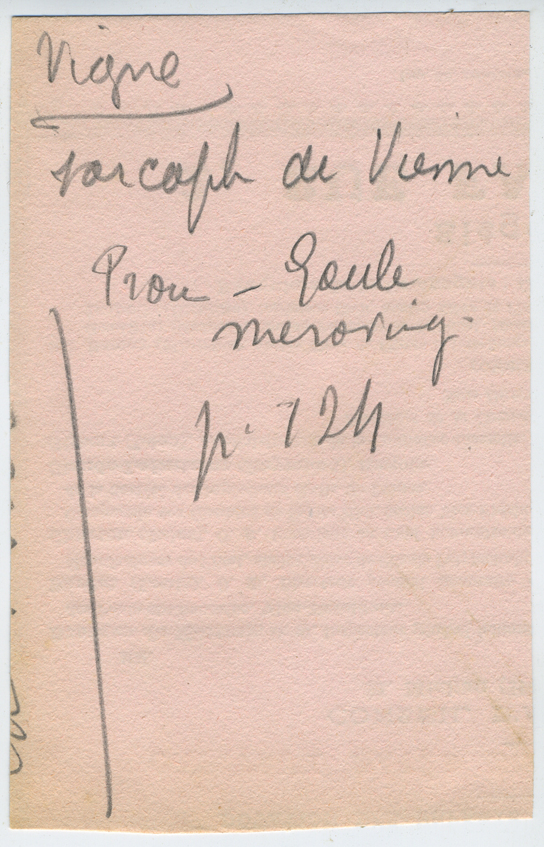 Vigne
sarcoph de Vienne
Prou - Gaule
meroving.
p. 124